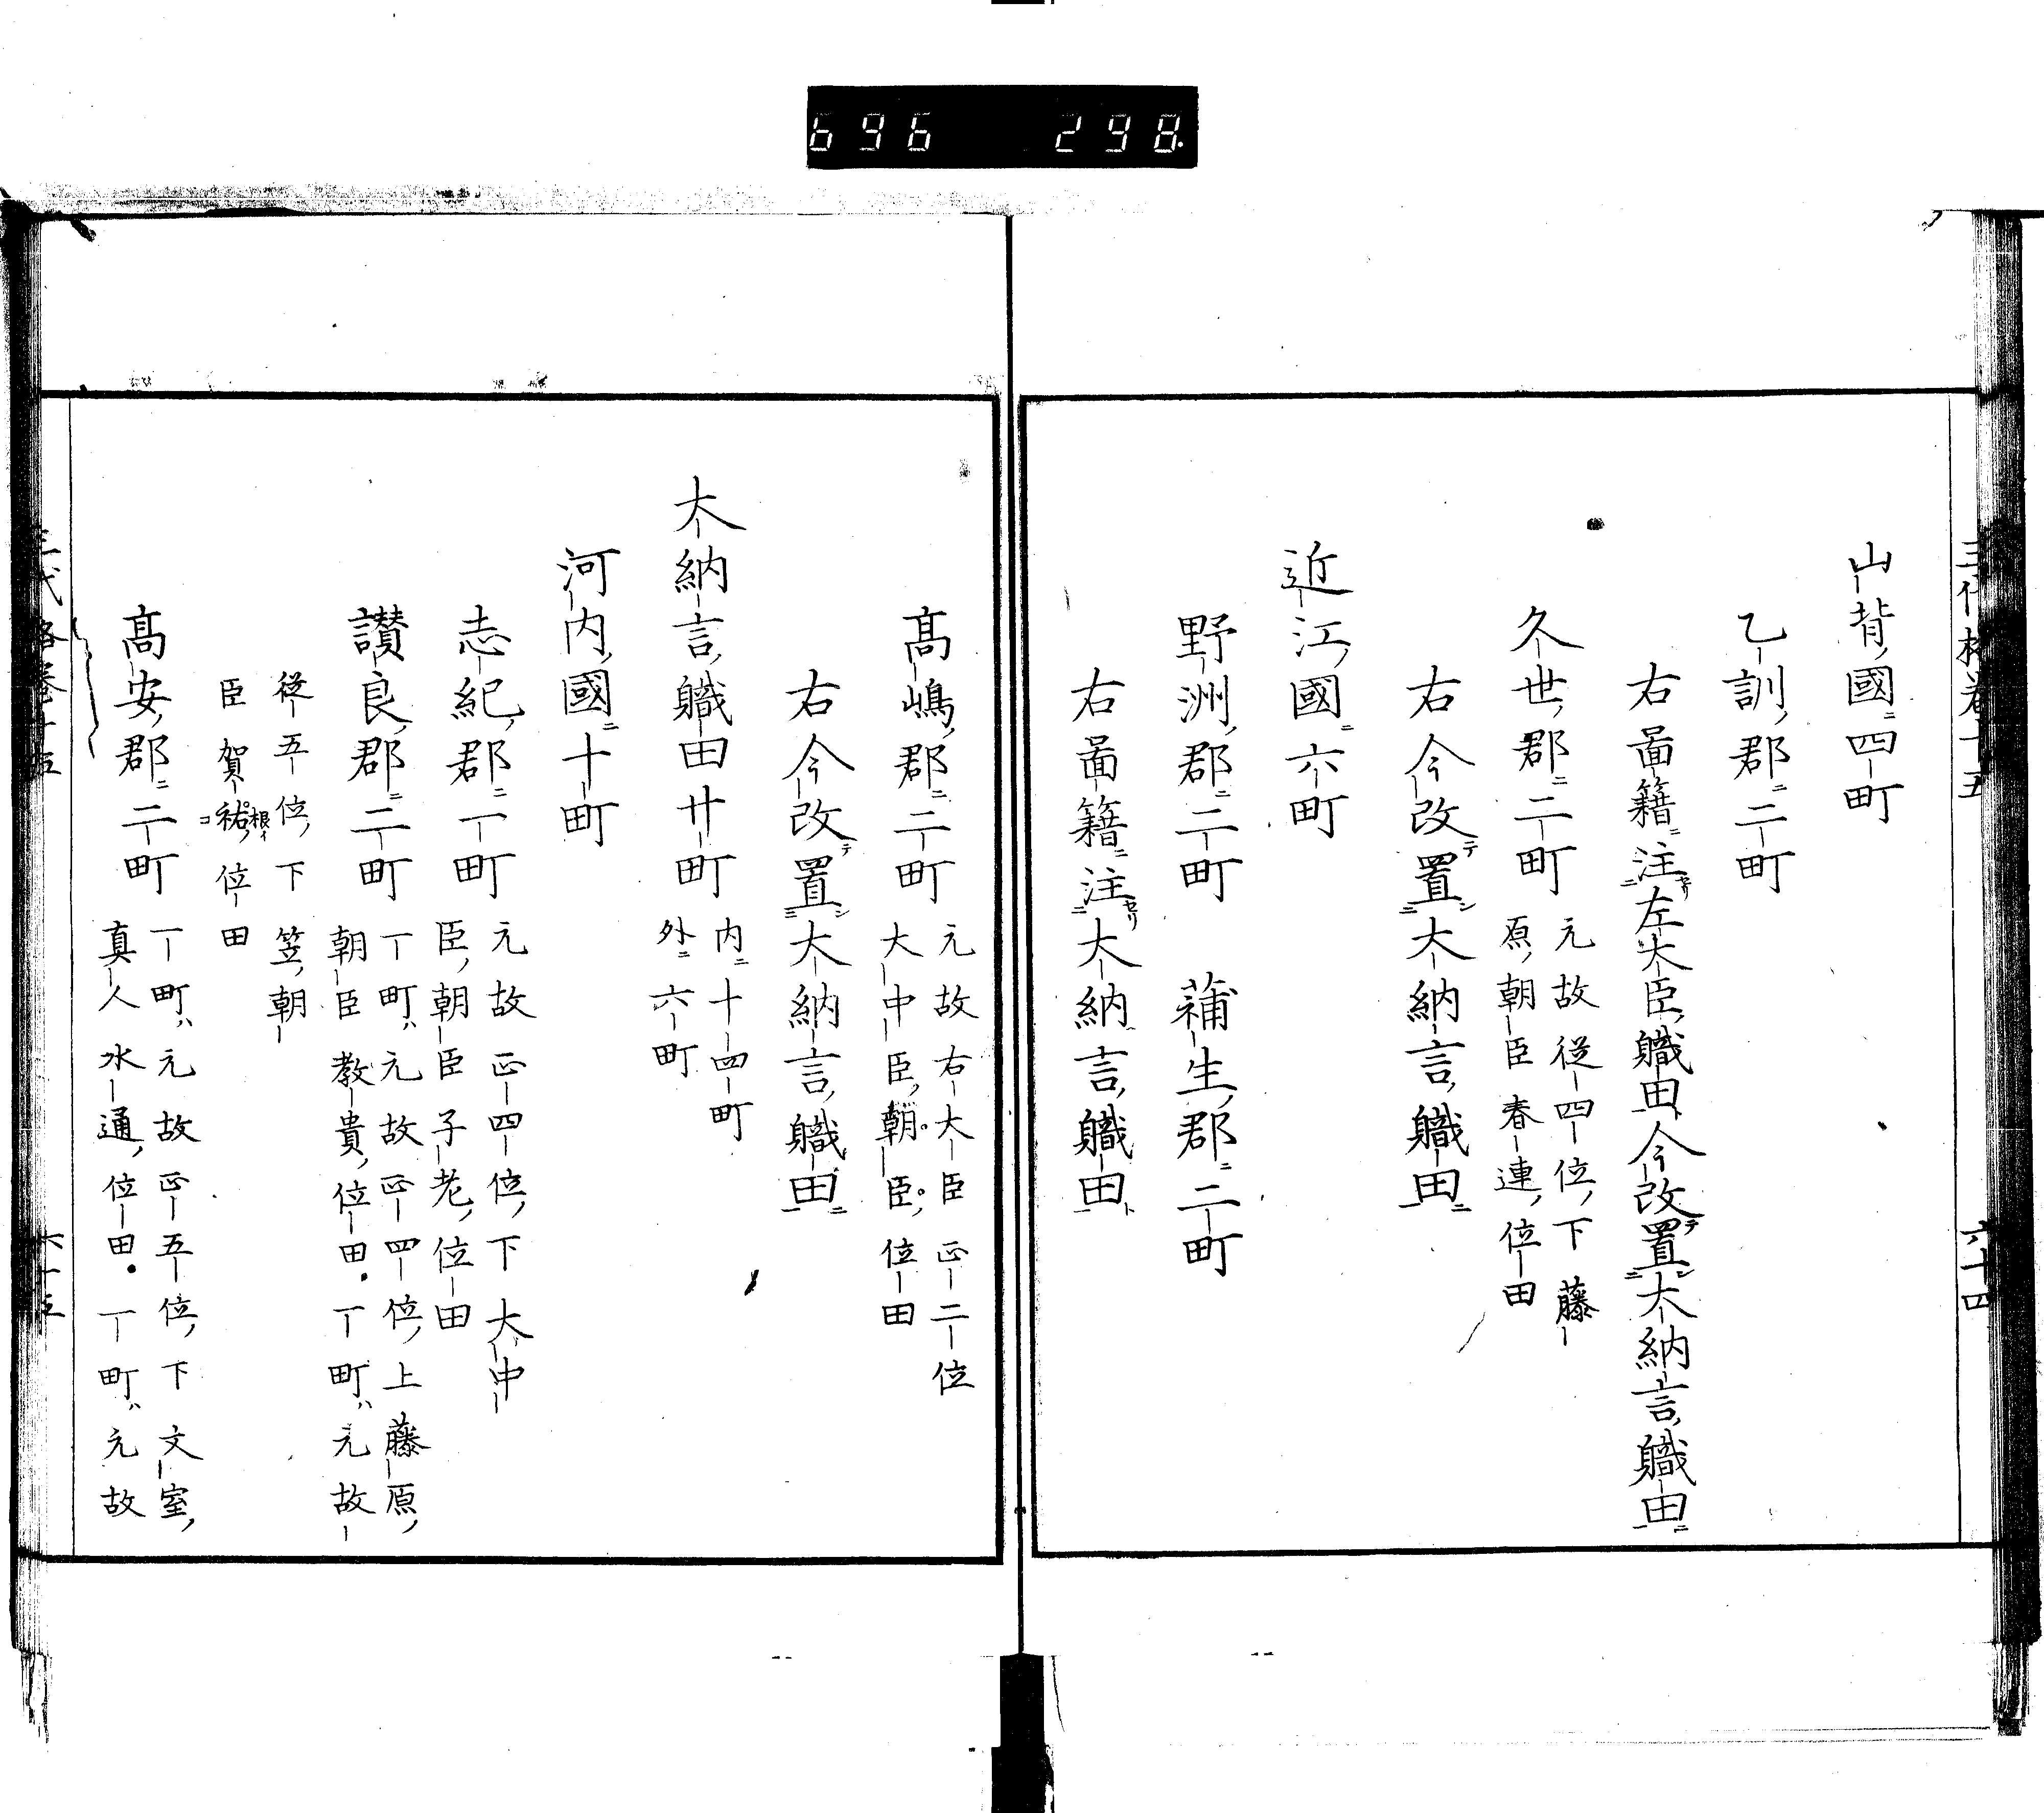 696 298
三代格卷十五 六十四
山背國四町
乙訓郡二町
右啚籍注左大臣職田今改置大納言職田
久世郡二町 元故從四位下藤
原朝臣春連位田
右今改置大納言職田
近江國六町
野洲郡二町 蒲生郡二町
右啚籍注大納言職田
髙嶋郡二町 元故右大臣正二位
大中臣朝臣位田
右今改置大納言職田
大納言職田廿町 内十四町
外六町
河内國十町
志紀郡一町 元故正四位下大中
臣朝臣子老位田
讃良郡二町 一町ハ元故正四位上藤原
朝臣教貴位田一町ハ元故
從五位下笠朝
臣賀祐位田
髙安郡二町 一町ハ元故正五位下文室
真人水通位田一町ハ元故